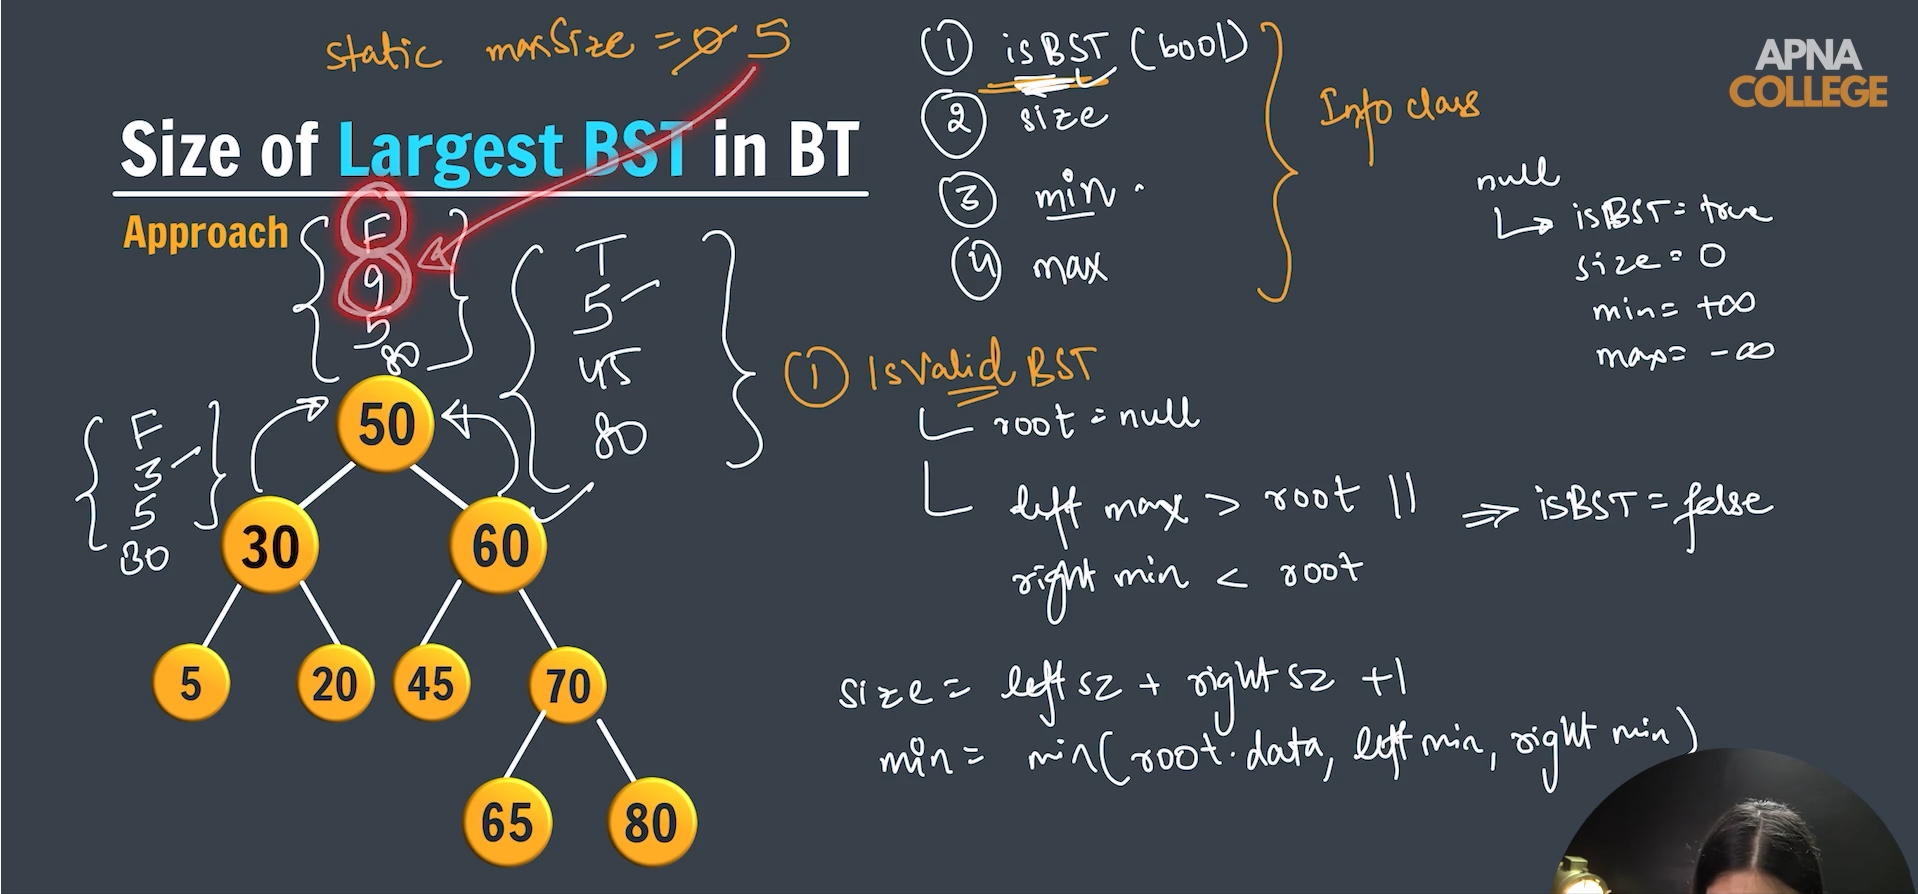 static maxSize = 0 5
Size of Largest BST in BT
Approach
F
9
5
80
T
5
45
80
F
3
5
30
50
30
60
5
20
45
70
65
80
① isBST (bool)
② size
③ min
④ max
Info class
APNA
COLLEGE
null
↳ isBST = true
size = 0
min = +∞
max = -∞
① IsValid BST
root = null
left max > root || ⇒ isBST = false
right min < root
size = left sz + right sz +1
min = min(root.data, left min, right min)